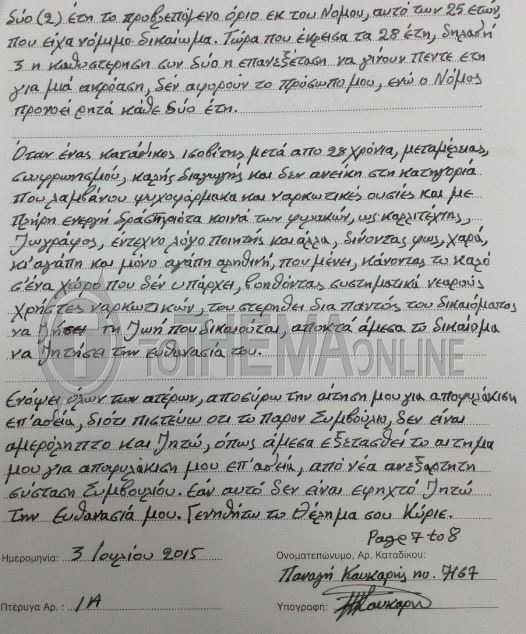 δύο (2) έτη το προβλεπόμενο όριο εκ του Νόμου, αυτό των 25 ετών
που είχα νόμιμο δικαίωμα. Τώρα που έκρεισα τα 28 έτη, δηλαδή
3 η καθυστέρηση συν δύο η επανεξέταση να γίνουν πέντε έτη
για μιά ακρόαση, δέν αφορούν το πρόσωπο μου, ενώ ο Νόμος
προνοεί ρητά κάθε δύο έτη.
Όταν ένας κατάδικος ισοβίτης μετά από 28 χρόνια, μεταμέλειας,
σωφρωνησμού, καλής διαγωγής και δεν ανείκη στη κατηγορία
που λαμβάνου ψυχοφάρμακα και ναρκωτικές ουσίες και με
πλήρη ενεργή δραστηριότα κοινά των φυλακών, ως καλλιτέχνης,
ζωγράφος, έντεχνο λόγο ποιητής και άλλα, δίνοντας φως, χαρά,
κι' αγάπη και μόνο αγάπη αληθινή, που μένει, κάνοντας το καλό
σ' ένα χώρο που δεν υπάρχει, βοηθόντας συστηματικά νεαρούς
χρήστες ναρκωτικών, του στερηθεί δια παντός του δικαιώματος
να ζήσει τη ζωή που δικαιούται, αποκτά άμεσα το δικαίωμα
να ζητήσει την ευθανασία του.
ΤΟ ΤΗΕΜΑ ONLINE
Ενόψει όλων των ατέρων, αποσύρω την αίτηση μου για αποφυλάκιση
επ' αδεία, διότι πιστεύω οτι το παρον Συμβούλιο, δεν είναι
αμερόληπτο και ζητώ, όπως άμεσα εξετασθεί το αιτημα
μου για αποφυλάκιση μου επ' αδεία, από νέα ανεξάρτητη
σύσταση Συμβουλίου. Εάν αυτό δεν είναι εφηχτό ζητώ
την Ευθανασία μου. Γεννηθήτω το Θέλημα σου Κύριε.
Page 7 to 8
Ημερομηνία: 3 Ιουλίου 2015
Ονοματεπώνυμο, Αρ. Καταδίκου:
Παναγή Καυκαρής no. 7167
Πτέρυγα Αρ. : 1Α
Υπογραφή: Καυκαρή